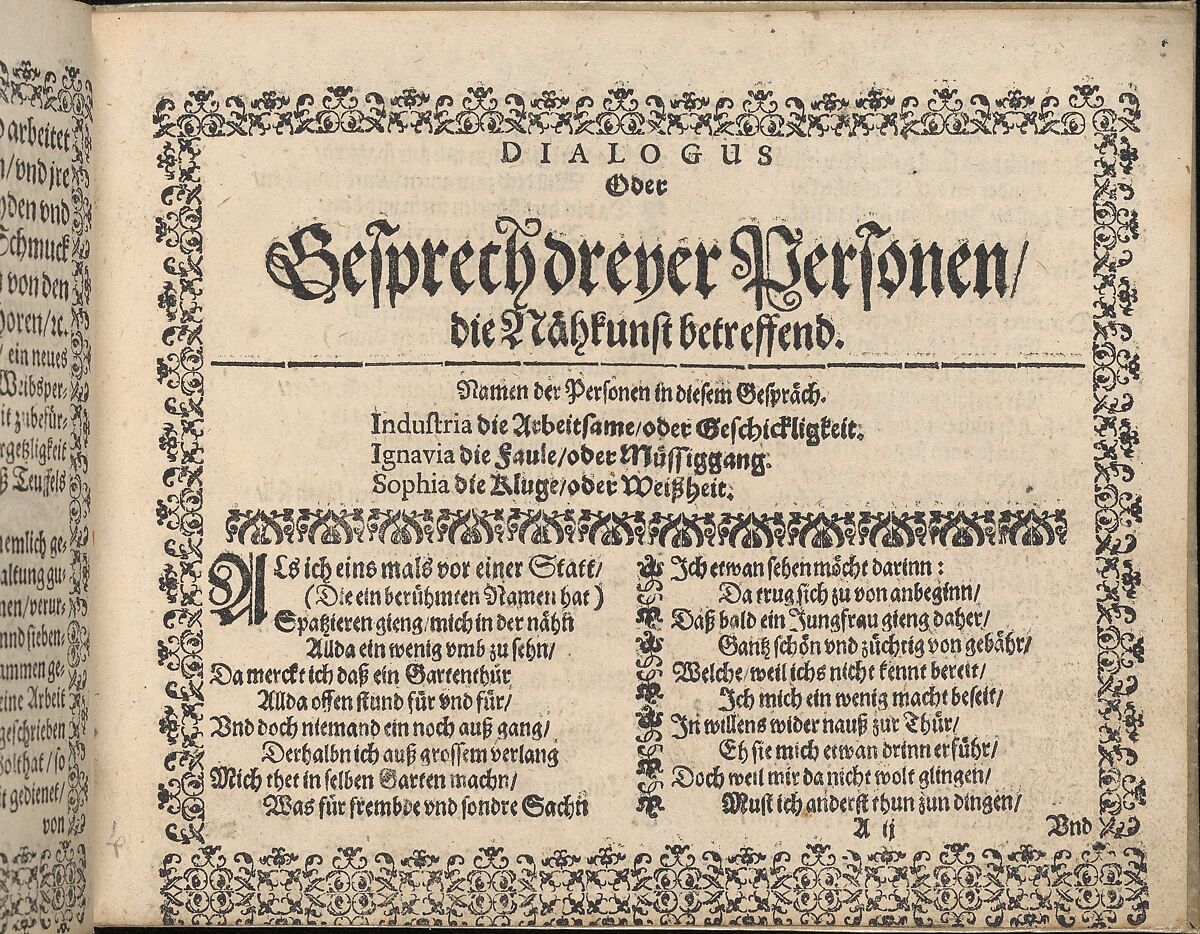 d arbeitet
n/ vnd jre
nden vnd
Schmuck
t von den
horen/ ꝛc.
/ ein neues
Weibsper-
it zubefür-
rgetzligkeit
ß Teuffels
nemlich ge-
altung gu-
nen/ verur-
nnd sieben-
ammen ge-
eine Arbeit
geschrieben
Wolthat / so
it gedienet/
von
DIALOGUS
Oder
Gesprech dreyer Personen/
die Nähkunst betreffend.
Namen der Personen in diesem Gespräch.
Industria die Arbeitsame/ oder Geschickligkeit.
Ignavia die Faule/ oder Müssiggang.
Sophia die Kluge/ oder Weißheit.
ALs ich eins mals vor einer Statt/
(Die ein berühmten Namen hat)
Spatzieren gieng/ mich in der nähn
Allda ein wenig vmb zu sehn/
Da merckt ich daß ein Gartenthür
Allda offen stund für vnd für/
Vnd doch niemand ein noch auß gang/
Derhalbn ich auß grossem verlang
Mich thet in selben Garten machn/
Was für frembde vnd sondre Sachn
Ich etwan sehen möcht darinn:
Da trug sich zu von anbeginn/
Daß bald ein Jungfrau gieng daher/
Gantz schön vnd züchtig von gebähr/
Welche/ weil ichs nicht kennt bereit/
Ich mich ein wenig macht beseit/
In willens wider nauß zur Thür/
Eh sie mich etwan drinn erführ/
Doch weil mir da nicht wolt glingen/
Must ich anderst thun zun dingen/
A ij
Vnd